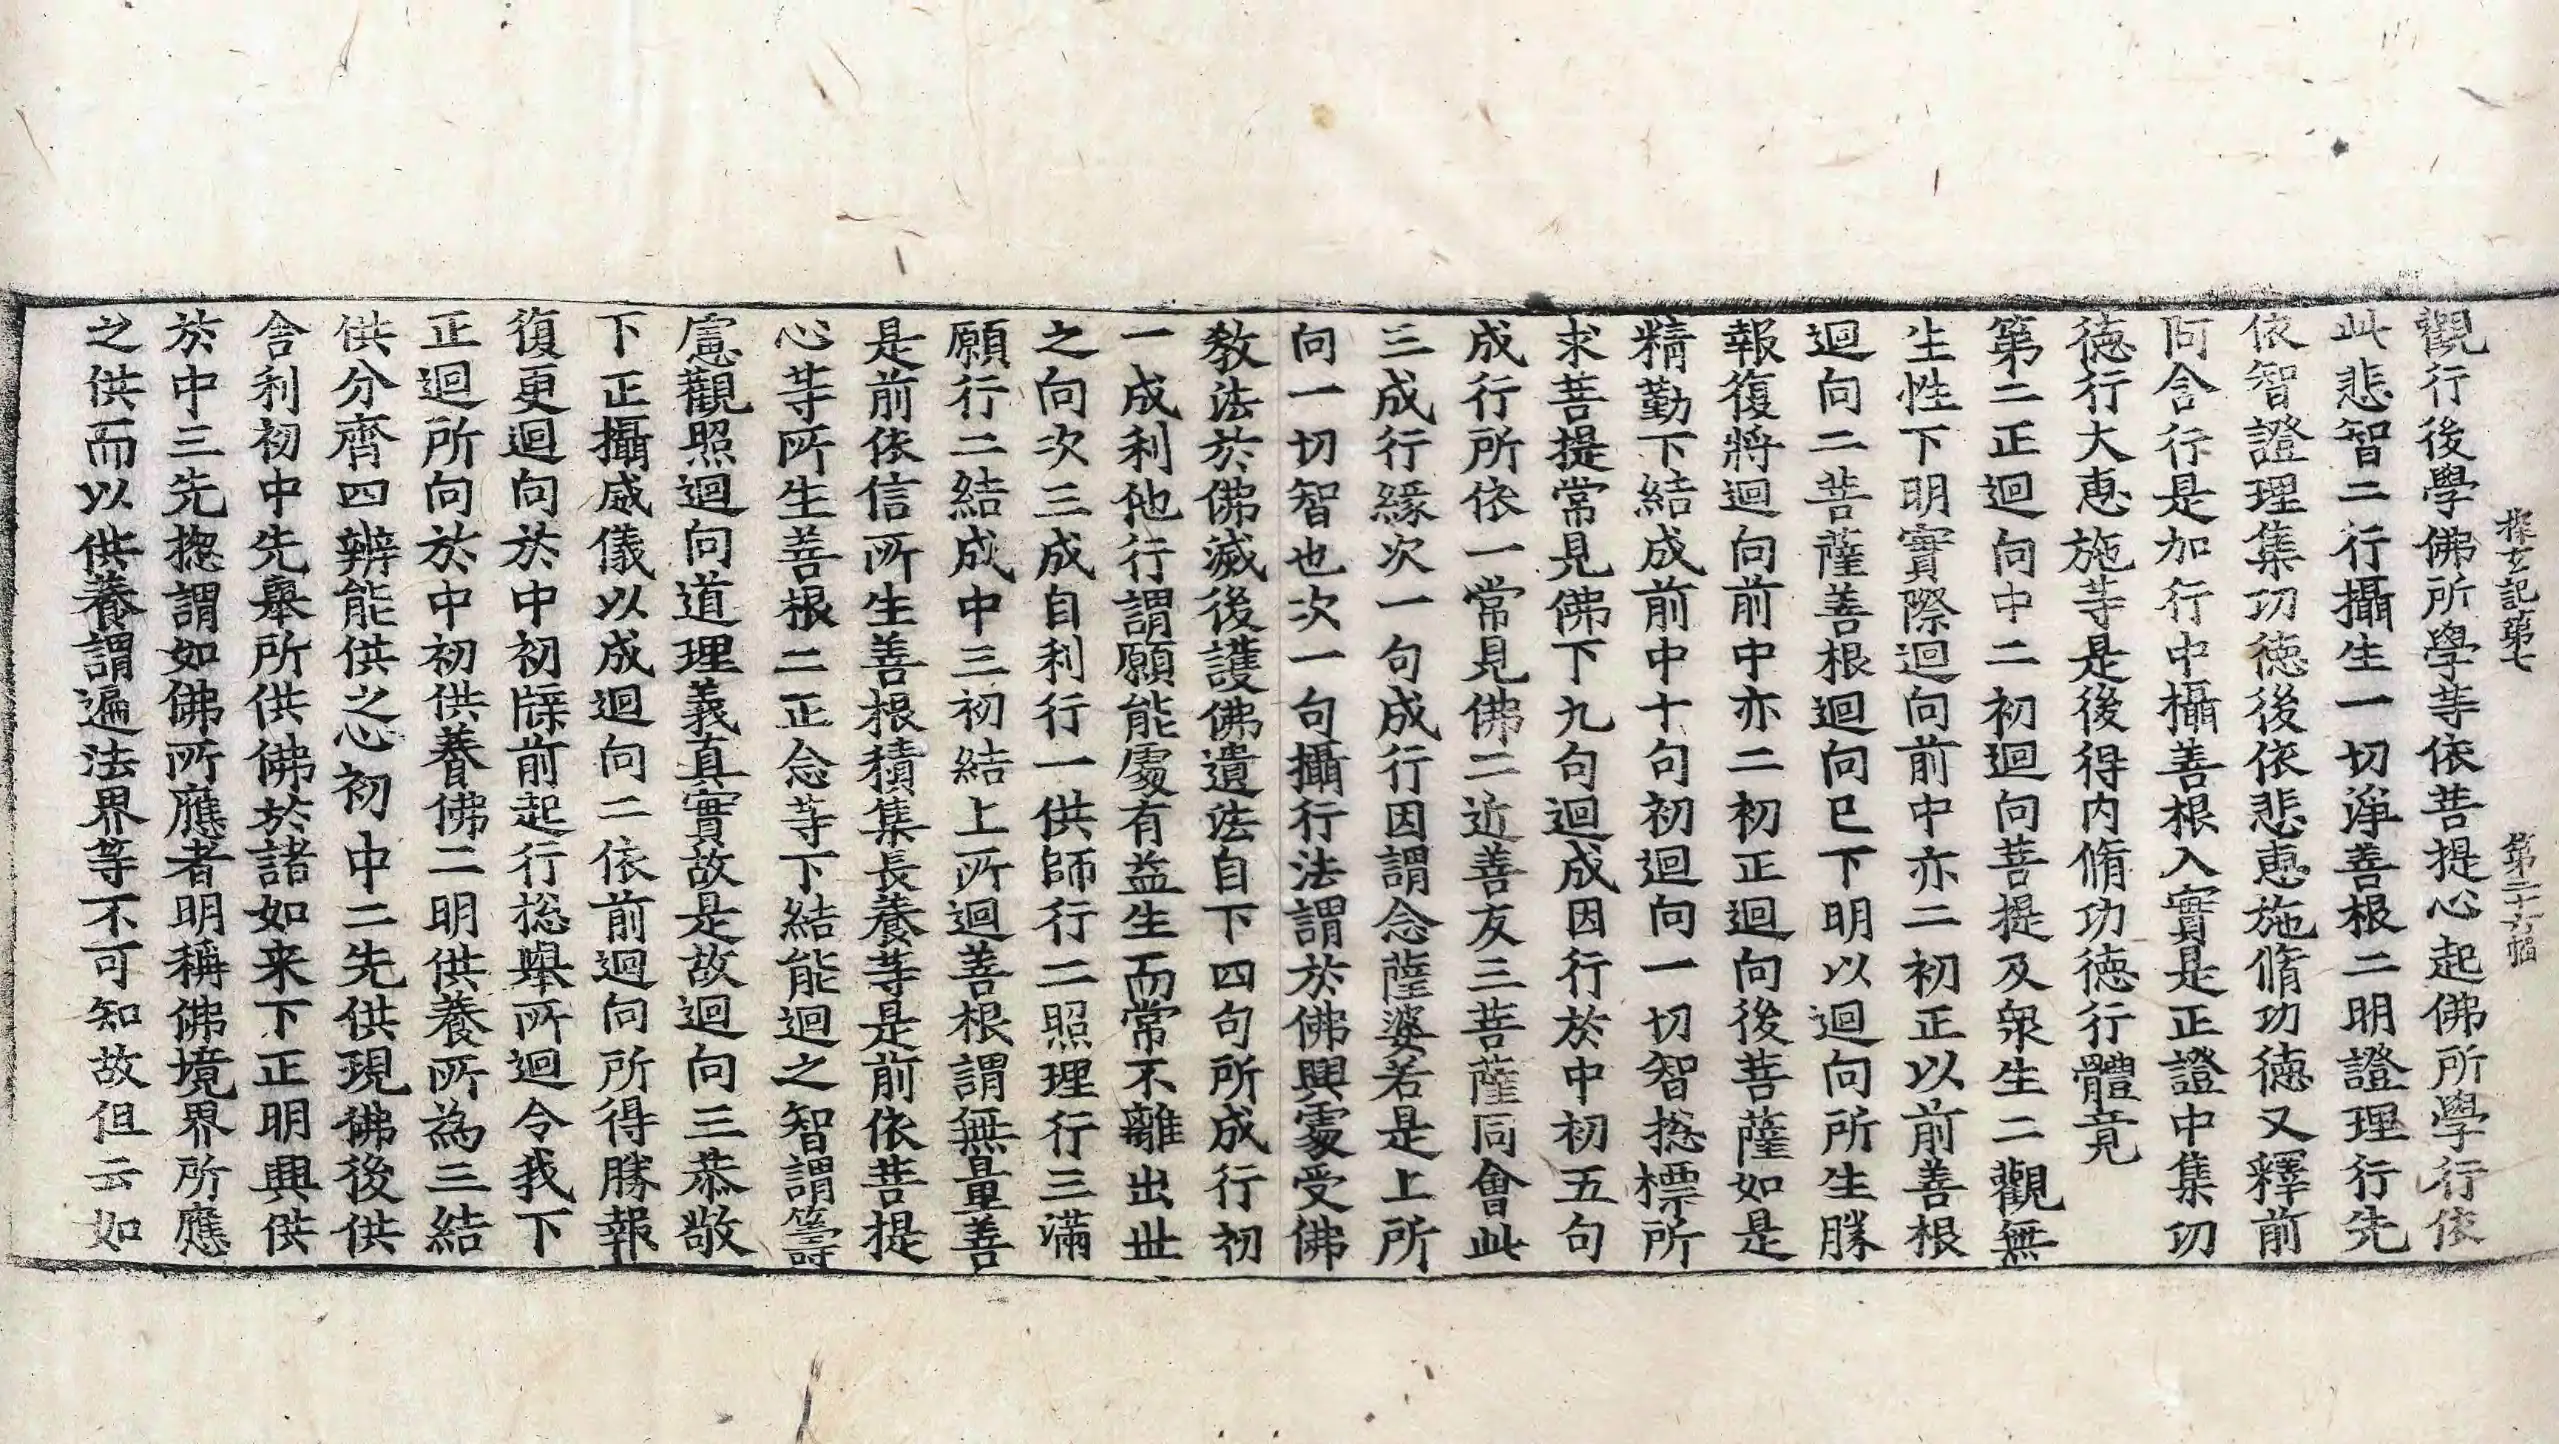 探玄記第七 第二十六幅
觀行後學佛所學等依菩提心起佛所學行依
此悲智二行攝生一切淨善根二明證理行先
依智證理集功德後依悲惠施脩功德又釋前
阿含行是加行中攝善根入實是正證中集功
德行大惠施等是後得内脩功德行體竟
第二正迴向中二初迴向菩提及衆生二觀無
生性下明實際迴向前中亦二初正以前善根
迴向二菩薩善根迴向已下明以迴向所生勝
報復將迴向前中亦二初正迴向後菩薩如是
精勤下結成前中十句初迴向一切智揔標所
求菩提常見佛下九句迴成因行於中初五句
成行所依一常見佛二近善友三菩薩同會此
三成行緣次一句成行因謂念薩婆若是上所
向一切智也次一句攝行法謂於佛興處受佛
教法於佛滅後護佛遺法自下四句所成行初
一成利他行謂願能處有益生而常不離出世
之向次三成自利行一供師行二照理行三滿
願行二結成中三初結上所迴善根謂無量善
是前依信所生善根積集長養等是前依菩提
心等所生善根二正念等下結能迴之智謂籌
慮觀照迴向道理義真實故是故迴向三恭敬
下正攝威儀以成迴向二依前迴向所得勝報
復更迴向於中初牒前起行揔舉所迴令我下
正迴所向於中初供養佛二明供養所為三結
供分齊四辨能供之心初中二先供現佛後供
舎利初中先舉所供佛於諸如来下正明興供
於中三先揔謂如佛所應者明稱佛境界所應
之供而以供養謂遍法界等不可知故但云如